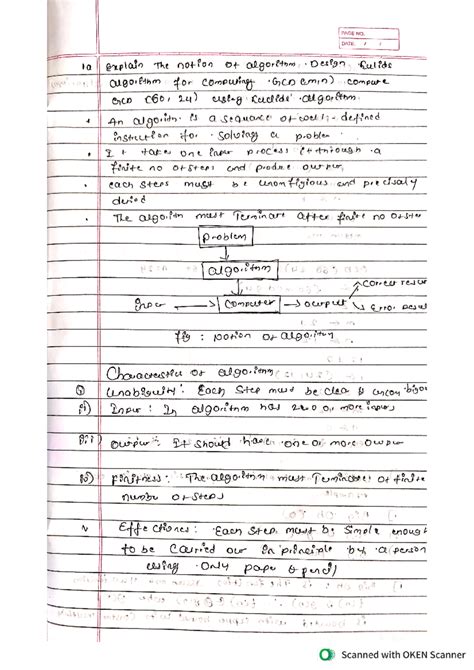 PAGE NO.
DATE: / /
1a Explain The notion of algorithm. Design Eulids
algorithm for computing GCD (m,n) compute
GCD (60, 24) using Euclids' algorithm
An algorithm is a sequence of well-defined
instruction for solving a problem
It takes one input process it through a
finite no of steps and produce output,
each steps must be and precisaly
The algorithm must Terminate after finite no of ste
problem
algorithm
Input computer output Correct resu
Error Resu
fig : notion of algorithm
Characterstic of algorithm
i) unabiguity: Each Step must be clear &
ii) Input: In algorithm has zero or more inputs
iii) output: It should have one or more output
iv) finitness: The algorithm must Terminate of finite
number of steps
v Effectiones: Each step must be Simple enough
to be carried out in principle by a person
using only paper & pencil
Scanned with OKEN Scanner